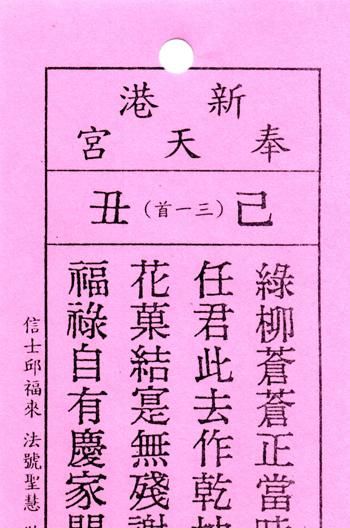 新港
奉天宮
己（三一首）丑
綠柳蒼蒼正當
任君此去作乾
花菓結寔無殘謝
福祿自有慶家門
信士邱福來 法號聖慧